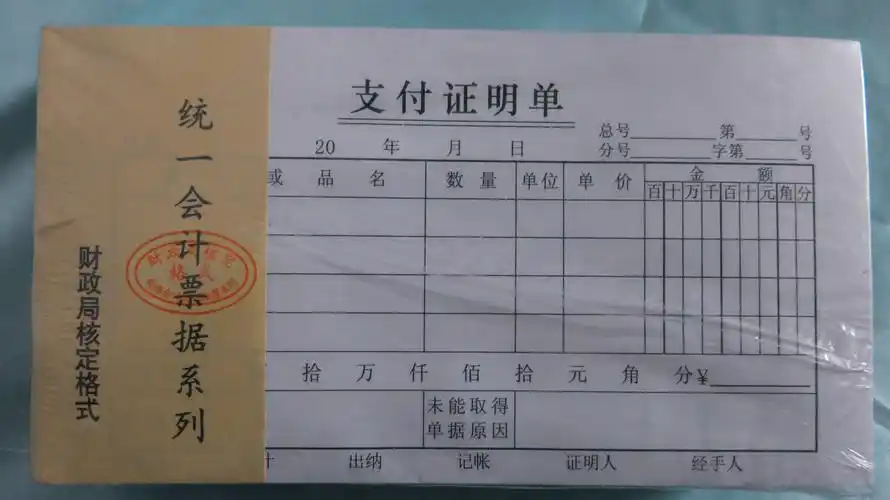 统一会计票据系列
财政局核定格式
支付证明单
总号 第 号
20 年 月 日 分号 字第 号
或品名 数量 单位 单价 金额
百十万千百十元角分
拾 万 仟 佰 拾 元 角 分¥
未能取得
单据原因
出纳 记帐 证明人 经手人